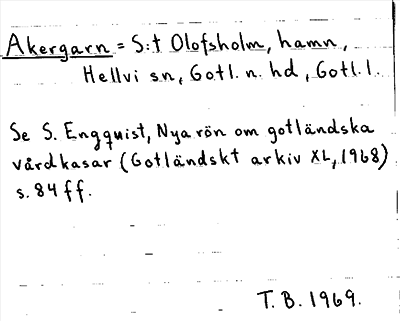 Akergarn = S:t Olofsholm, hamn,
Hellvi sn, Gotl. n. hd, Gotl. l.
Se S. Engquist, Nya rön om gotländska
vårdkasar (Gotländskt arkiv XL, 1968)
s. 84 ff.
T. B. 1969.